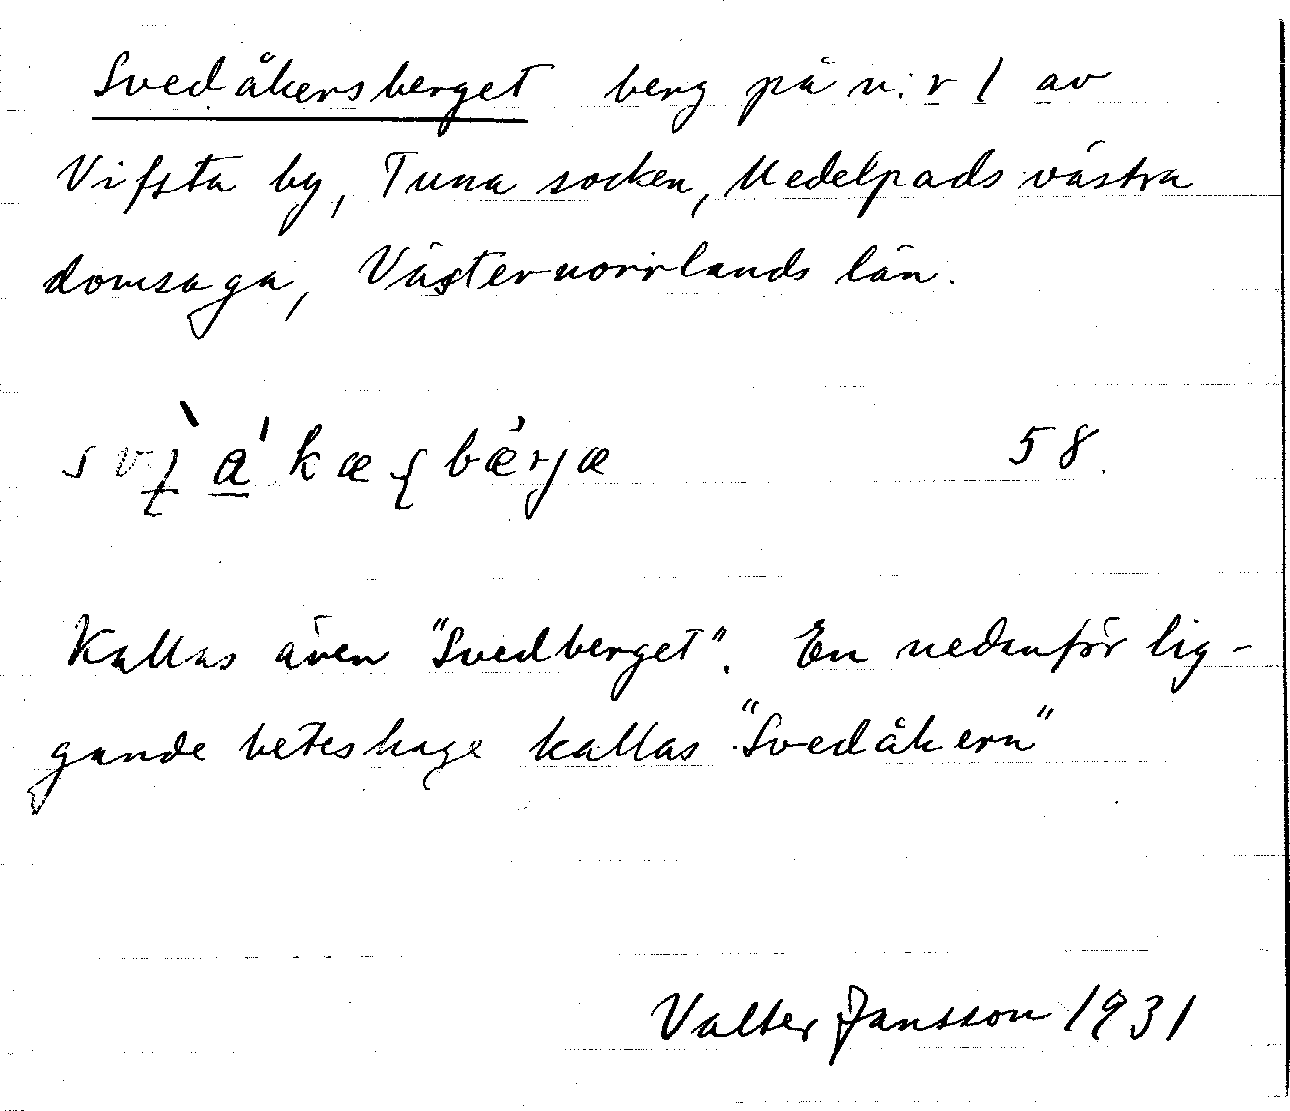 Svedåkersberget berg på n:r 1 av
Vifsta by, Tuna socken, Medelpads västra
domsaga, Västernorrlands län.
58.
Kallas även "Svedberget". En nedanför lig-
gande beteshage kallas "Svedåkern"
Valter Jansson 1931